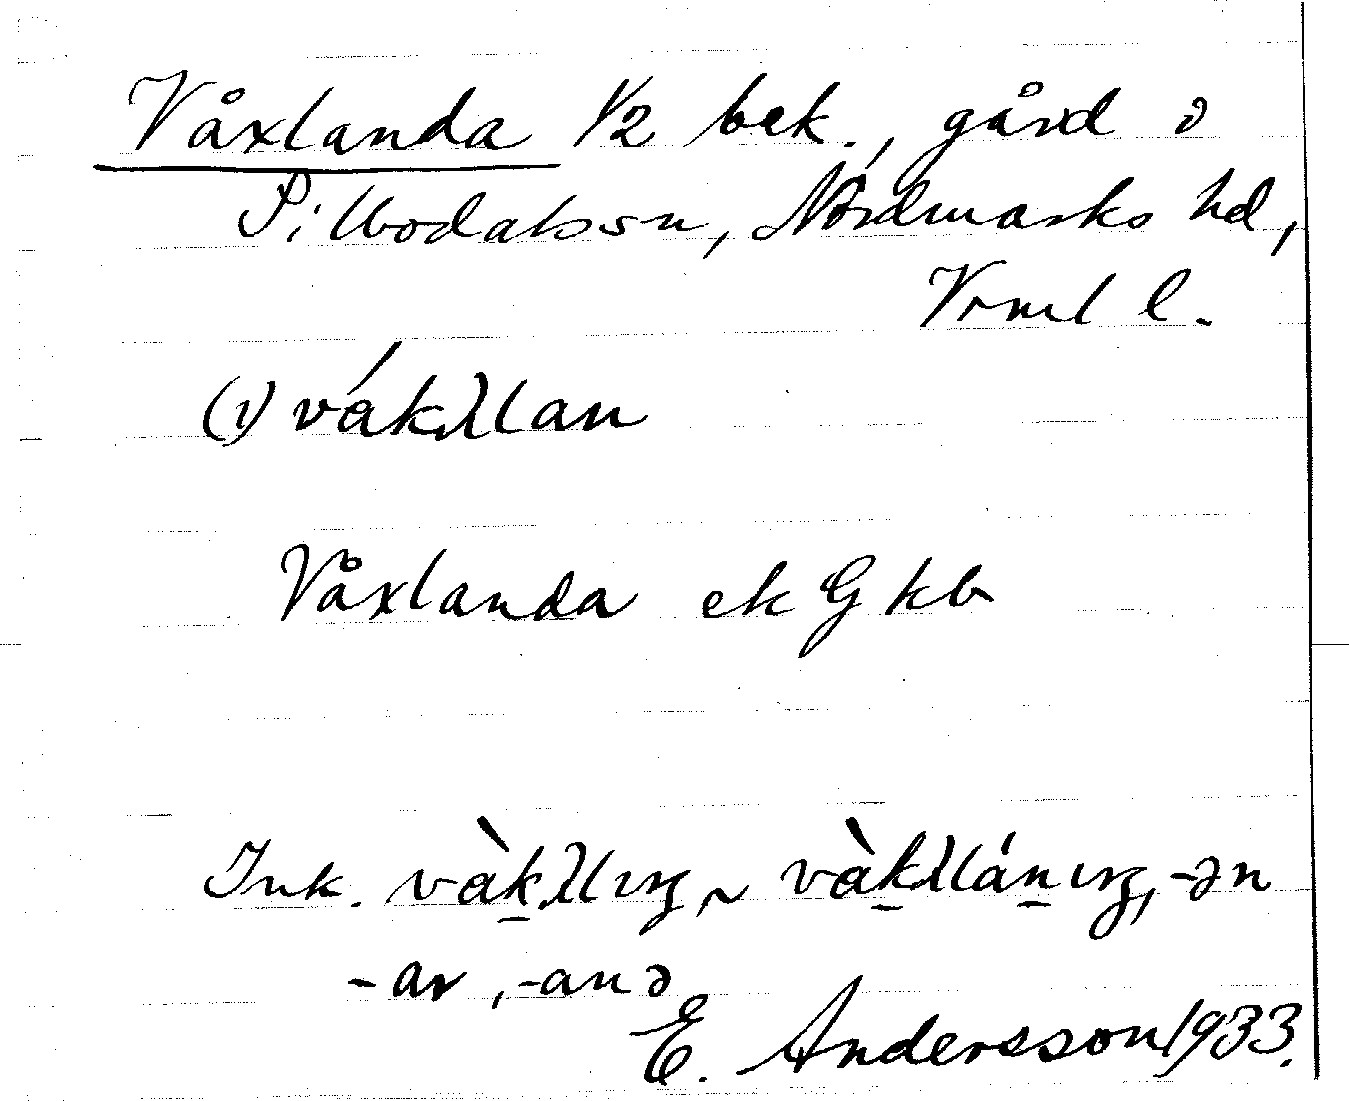 Våxlanda 1/2 bek., gård i
Silbodals sn, Nordmarks hd,
Vrml l.
(ı) vákslan
Våxlanda ek G kb
Ink. vàk̠slıŋ, ~ vàk̠slán̠ıŋ, -ən
-ar, -anə
E. Andersson 1933.